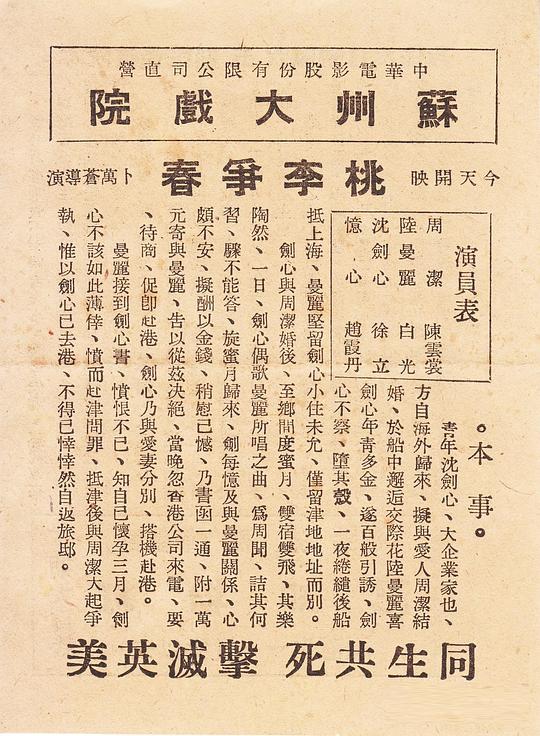 中華電影股份有限公司直營
蘇州大戲院
今天開映
桃李爭春
卜萬蒼導演
演員表
周潔 陳雲裳
陸曼麗 白光
沈劍心 徐立
憶心 趙霞丹
。本事。
青年沈劍心、大企業家也、
方自海外歸來、擬與愛人周潔結
婚、於船中邂逅交際花陸曼麗喜
劍心年青多金、遂百般引誘、劍
心不察、墮其彀、一夜綣繾後船
抵上海、曼麗堅留劍心小住未允、僅留津地地址而別。
劍心與周潔婚後、至鄉間度蜜月、雙宿雙飛、其樂
陶然、一日、劍心偶歌曼麗所唱之曲、爲周聞、詰其何
習、驟不能答、旋蜜月歸來、劍每憶及與曼麗關係、心
頗不安、擬酬以金錢、稍慰己憾、乃書函一通、附一萬
元寄與曼麗、告以從茲決絕、當晚忽香港公司來電、要
、待商、促卽赴港、劍心乃與愛妻分別、搭機赴港。
曼麗接到劍心書、憤恨不已、知自己懷孕三月、劍
心不該如此薄倖、憤而赴津問罪、抵津後與周潔大起爭
執、惟以劍心已去港、不得已悻悻然自返旅邸。
同生共死 擊滅英美